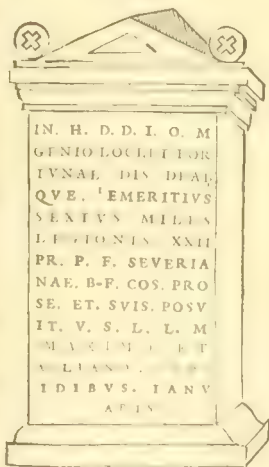 IN. H. D. D. I. O. M
GENIO LOCI ET FOR
TVNAE DIS DEAE
QVE. EMERITIVS
SEXTVS MILES
LEGIONIS XXII
PR. P. F. SEVERIA
NAE. B-F. COS. PRO
SE. ET. SVIS. POSV
IT. V. S. L. L. M
ET
IDIBVS. IANV